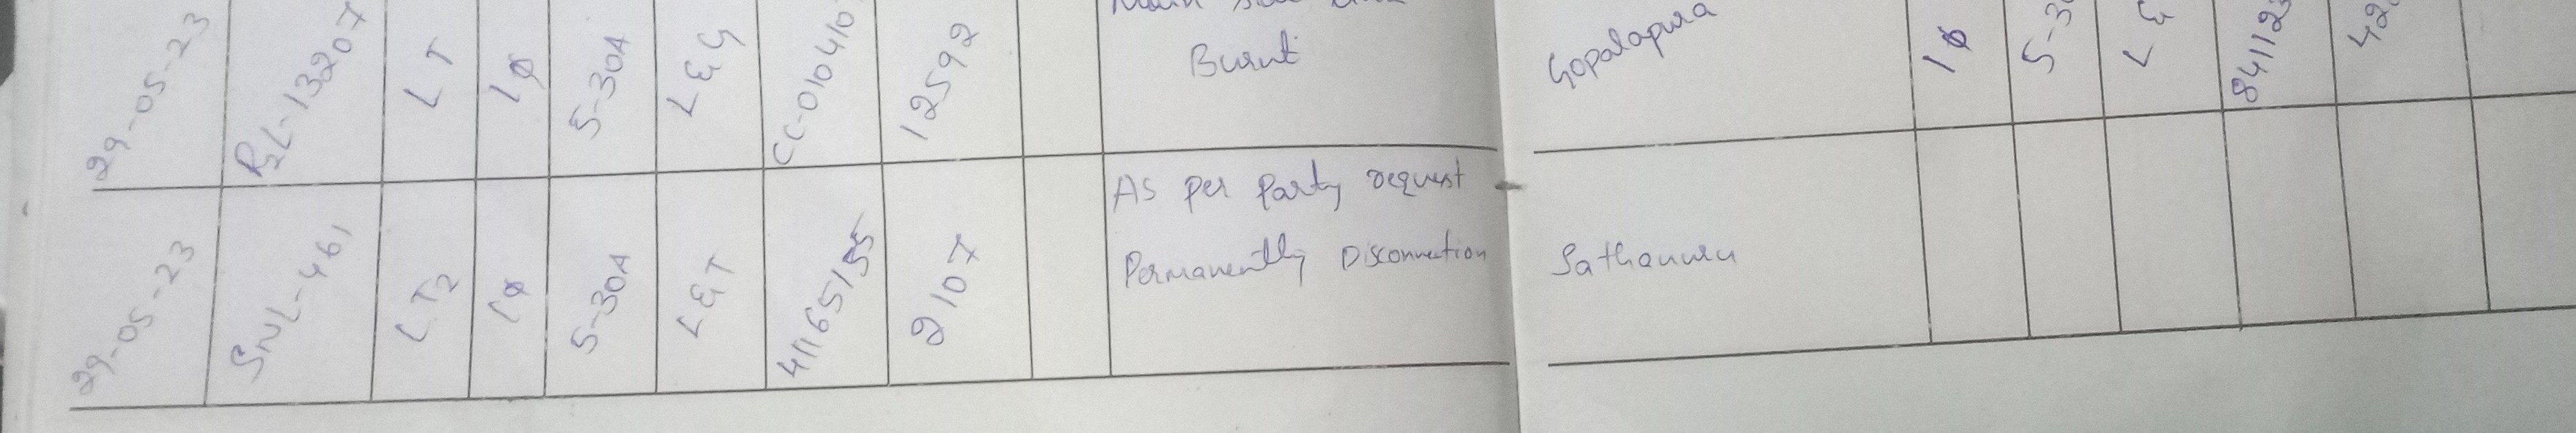 29-05-23
P2L-13207
LT
1ϕ
5-30A
L&G
CC-010410
12592
Burnt
Gopalapura
1ϕ
5-30
L &
841123
42
29-05-23
SNL-461
LT2
1ϕ
5-30A
L&T
41165155
2107
As per party request
Permanently Disconnection
Sathanuru